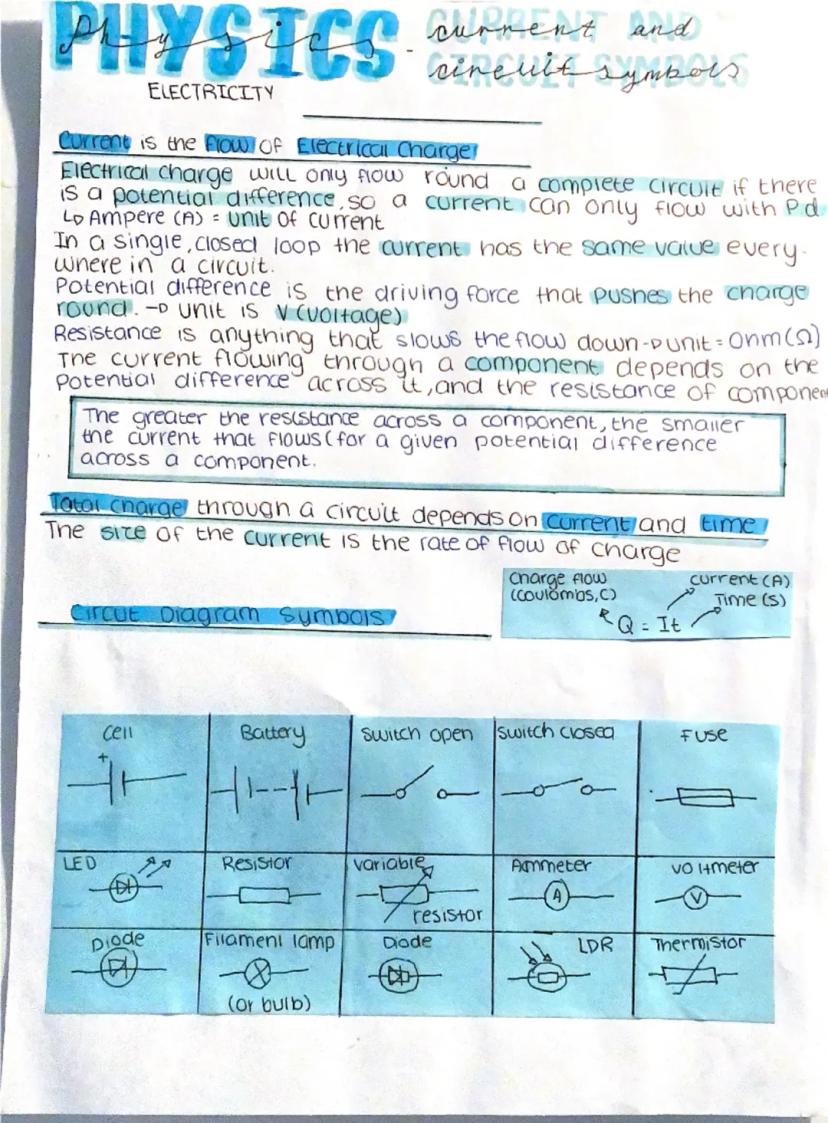 PHYSICS
Physics - current and
circuit symbols
CURRENT AND
CIRCUIT SYMBOLS
ELECTRICITY
Current is the flow of Electrical Charge
Electrical charge will only flow round a complete circuit if there
is a potential difference, so a current can only flow with Pd
↳ Ampere (A) = unit of current
In a single, closed loop the current has the same value every-
where in a circuit.
Potential difference is the driving force that pushes the charge
round. → unit is V (voltage)
Resistance is anything that slows the flow down → unit = Ohm (Ω)
The current flowing through a component depends on the
Potential difference across it, and the resistance of component
The greater the resistance across a component, the smaller
the current that flows (for a given potential difference
across a component.
Total charge through a circuit depends on current and time
The size of the current is the rate of flow of charge
Charge flow current (A)
(coulombs, C) Time (s)
Q = It
Circut Diagram Symbols
Cell Battery Switch open Switch closed Fuse
+
LED Resistor Variable Ammeter Voltmeter
A V
resistor
Diode Filament lamp Diode LDR Thermistor
(or bulb)